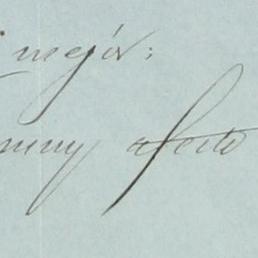 mejór;
muy afecto